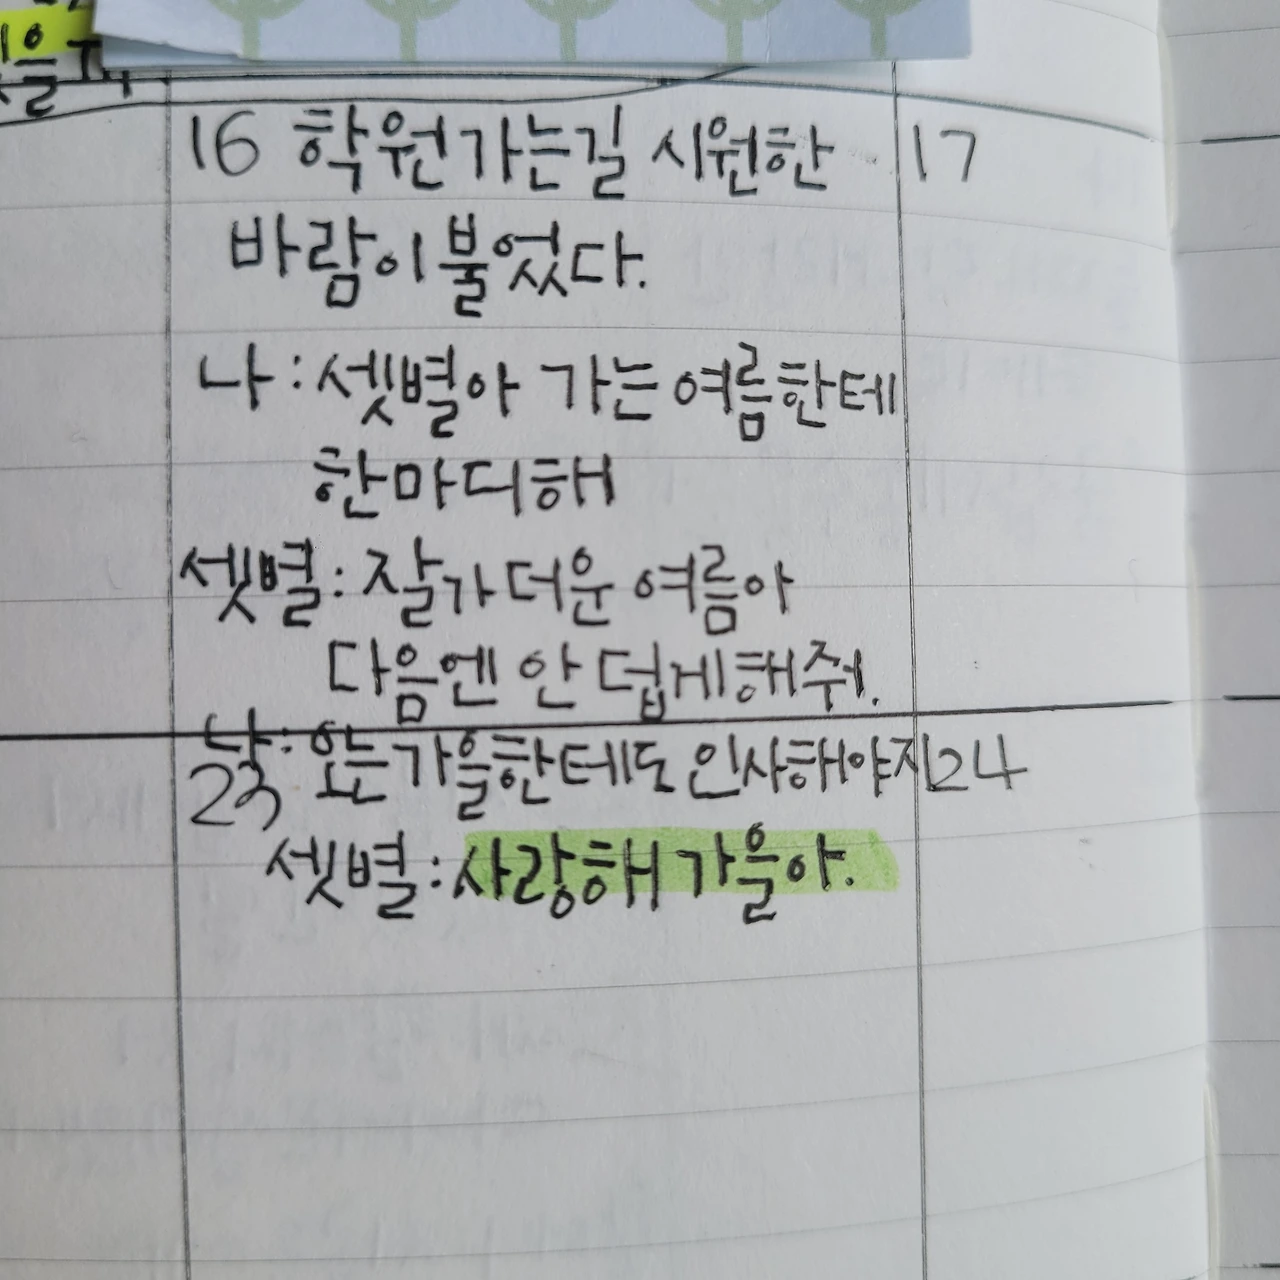 16 학원가는길 시원한 17
바람이 불었다.
나 : 셋별아 가는 여름한테
한마디해
셋별 : 잘가 더운 여름아
다음엔 안 덥게해줘.
나 : 오는 가을한테도 인사해야지
23 24
셋별 : 사랑해 가을아.